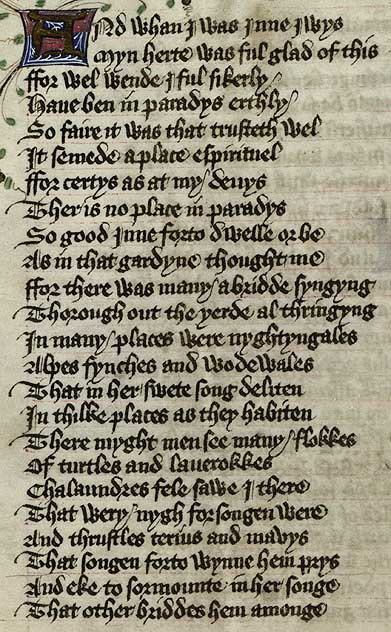 And whan I was Inne Iwys
Myn herte was ful glad of this
ffor wel wende I ful sikerly
Haue ben in paradys erthly
So faire it was that trusteth wel
It semede a place espirituel
ffor certys as at my deuys
Ther is no place in paradys
So good Inne forto dwelle or be
As in that gardyne thought me
ffor there was many a bridde syngyng
Thorough out the yerde al thringyng
In many places were nyghtyngales
Alpes fynches and wodewales
That in her swete song deliten
In thilke places as they habiten
There myght men see many flokkes
Of turtles and lauerokkes
Chalaundres fele sawe I there
That wery nygh forsongen were
And thrustles terius and mavys
That songen forto wynne hem prys
And eke to sormounte in her songe
That other briddes hem amonge